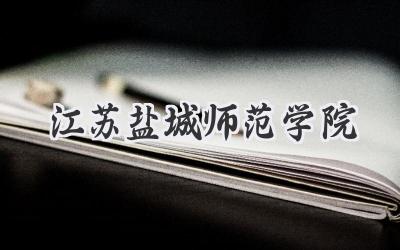 江苏盐城师范学院